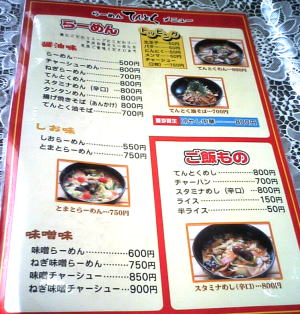 らーめん てんとく メニュー
らーめん
醤油味
らーめん 500円
チャーシューめん 800円
ねぎらーめん 700円
てんとくめん 800円
スタミナめん（辛口） 800円
タンタンめん 800円
揚げ焼きそば（あんかけ） 800円
てんとく油そば 700円
しお味
しおらーめん 550円
とまとらーめん 750円
とまとらーめん…750円
味噌味
味噌らーめん 600円
ねぎ味噌らーめん 750円
味噌チャーシュー 850円
ねぎ味噌チャーシュー 900円
トッピング
バター 50円
にんにく 50円
メンマ
チャーシュー
てんとくめん…800円
てんとく油そば…700円
ご飯もの
てんとくめし 800円
チャーハン 700円
スタミナめし（辛口） 800円
ライス 150円
半ライス 50円
スタミナめし（辛口）…800円